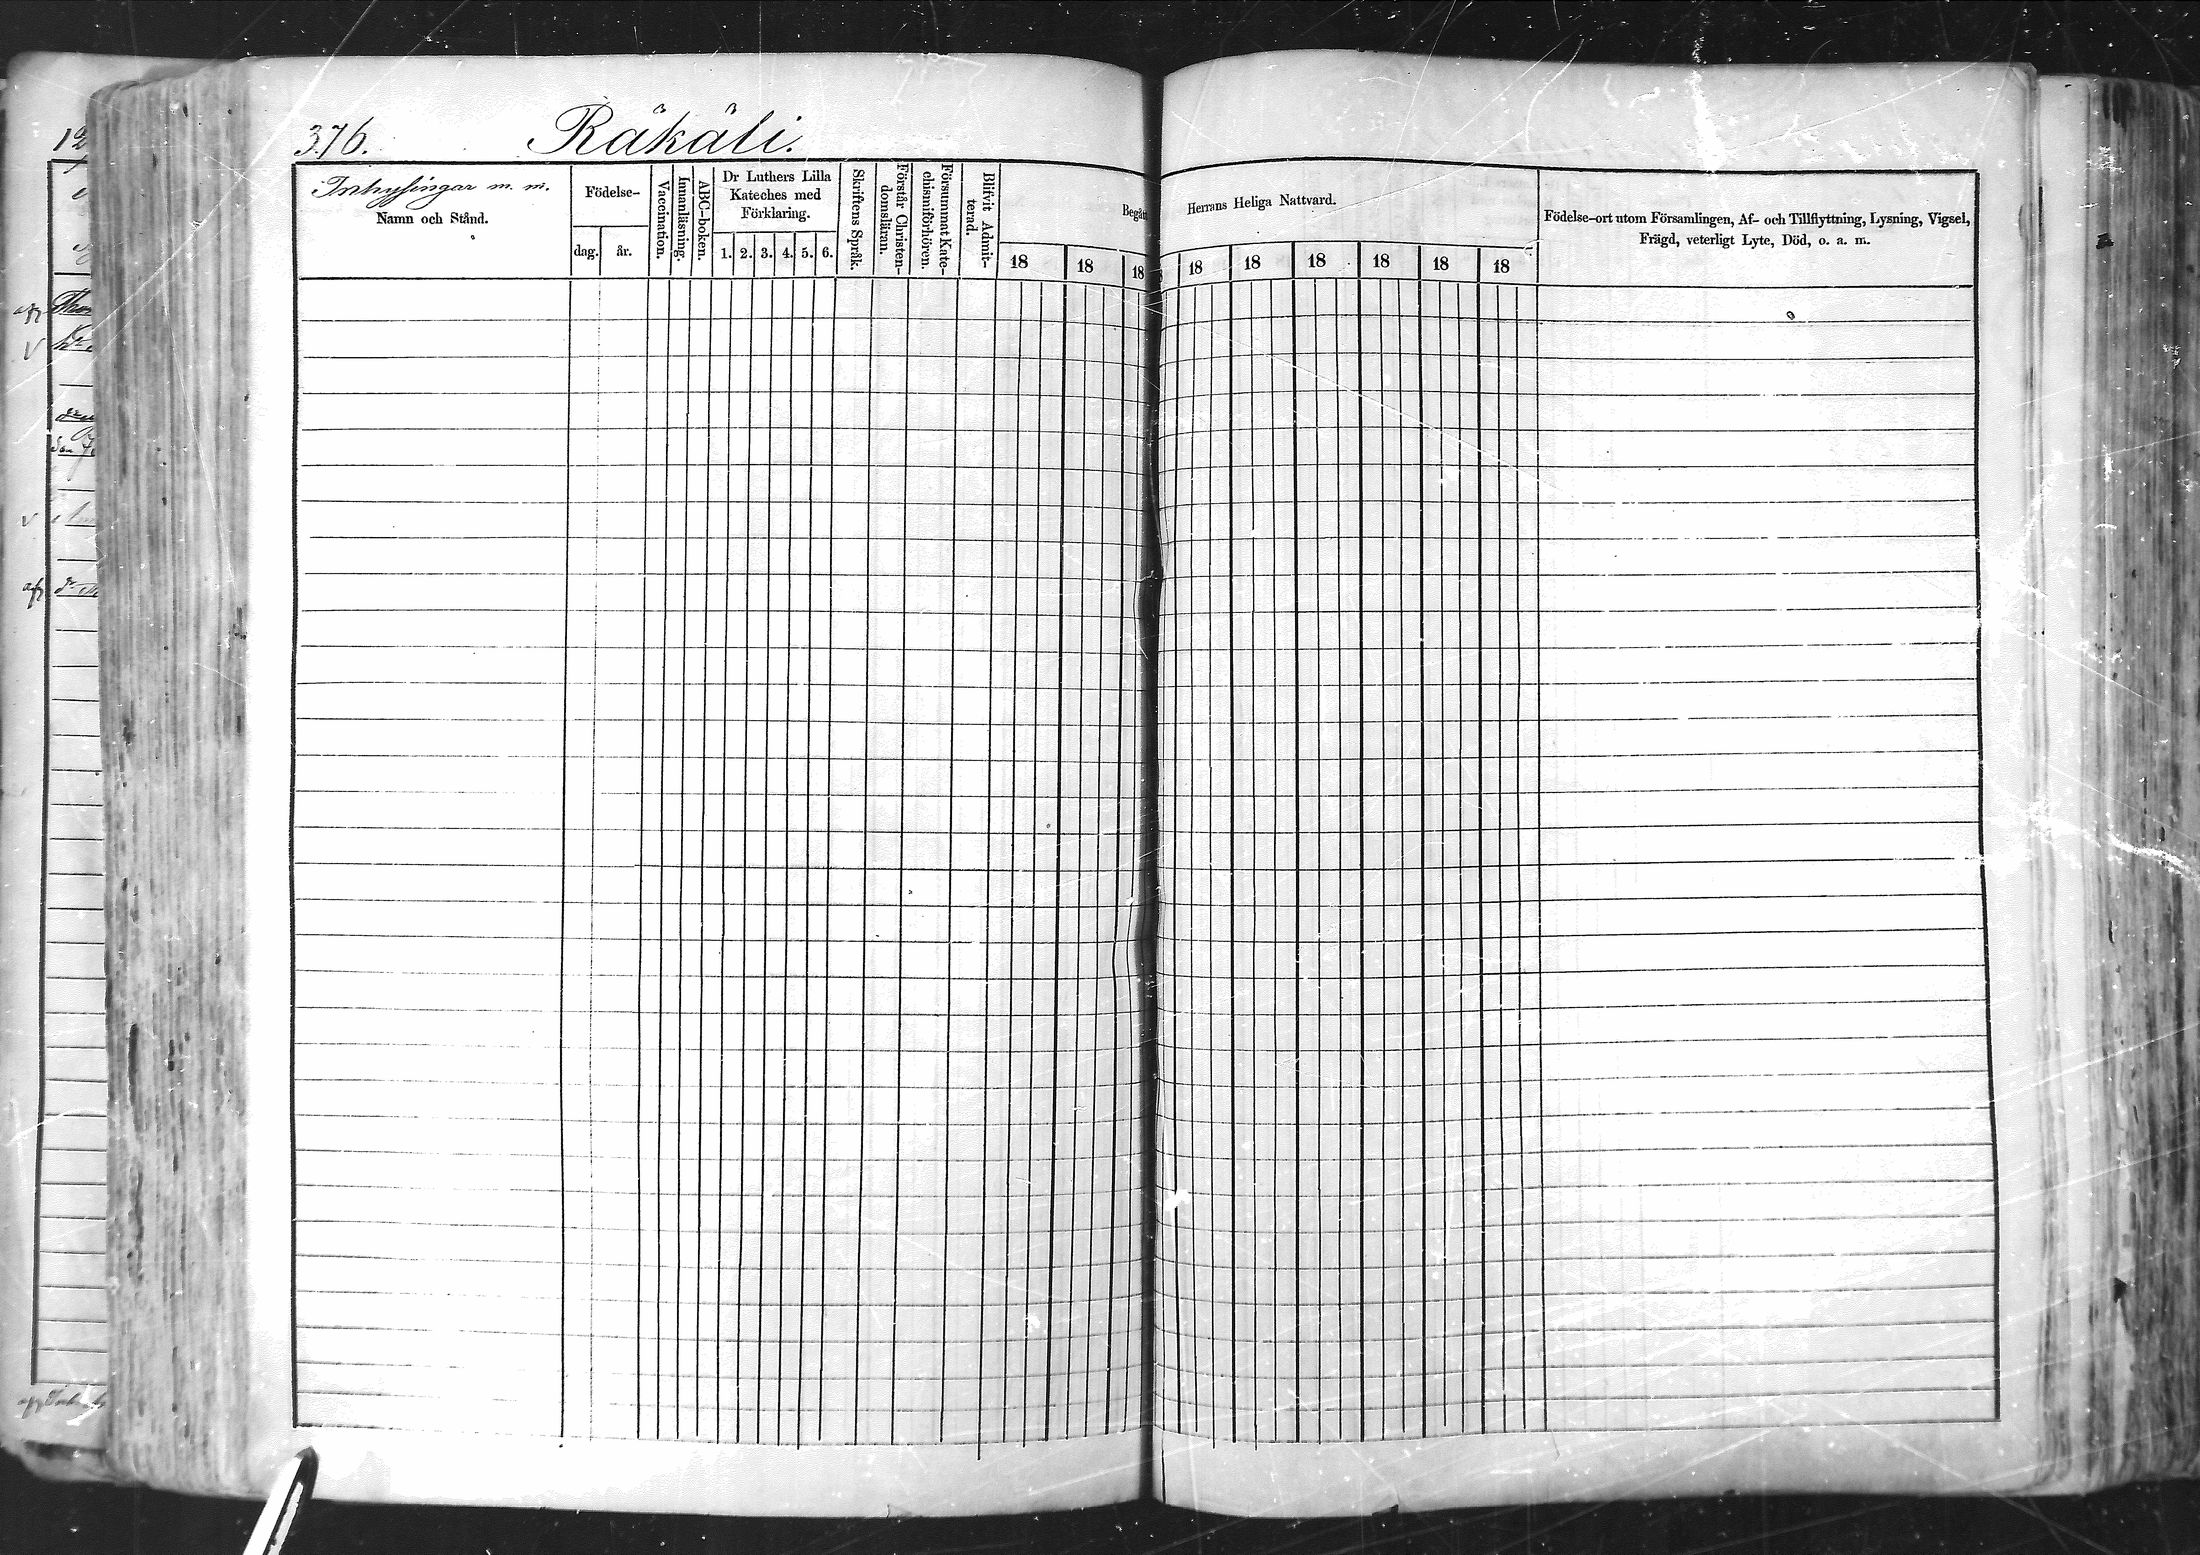 376.
Räkäli.
Inhysingar m. m.
Namn och Stånd.
Födelse-
dag.
år.
Vaccination.
Innanläsning.
ABC-boken.
Dr Luthers Lilla
Kateches med
Förklaring.
1. 2. 3. 4. 5. 6.
Skriftens Språk.
Förstår Christen-
domsläran.
Försummat Kate-
chismiförhören.
Blifvit Admit-
terad.
Begåt Herrans Heliga Nattvard.
18 18 18 18 18 18 18 18 18
Födelse-ort utom Församlingen, Af- och Tillflyttning, Lysning, Vigsel,
Frägd, veterligt Lyte, Död, o. a. m.